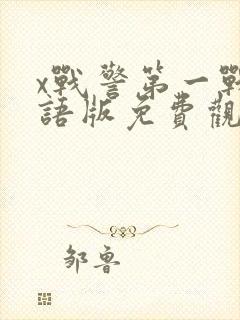 x戰警第一戰
語版免費觀
邹鲁